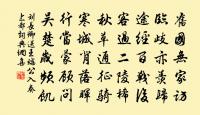 舊國無家訪
臨歧亦羨歸
途經百戰後
客過二陵稀
秋草通征騎
寒城背落暉
行當蒙顧問
吳楚歲頻飢
劉長卿送王端公入奏
上都詞典網